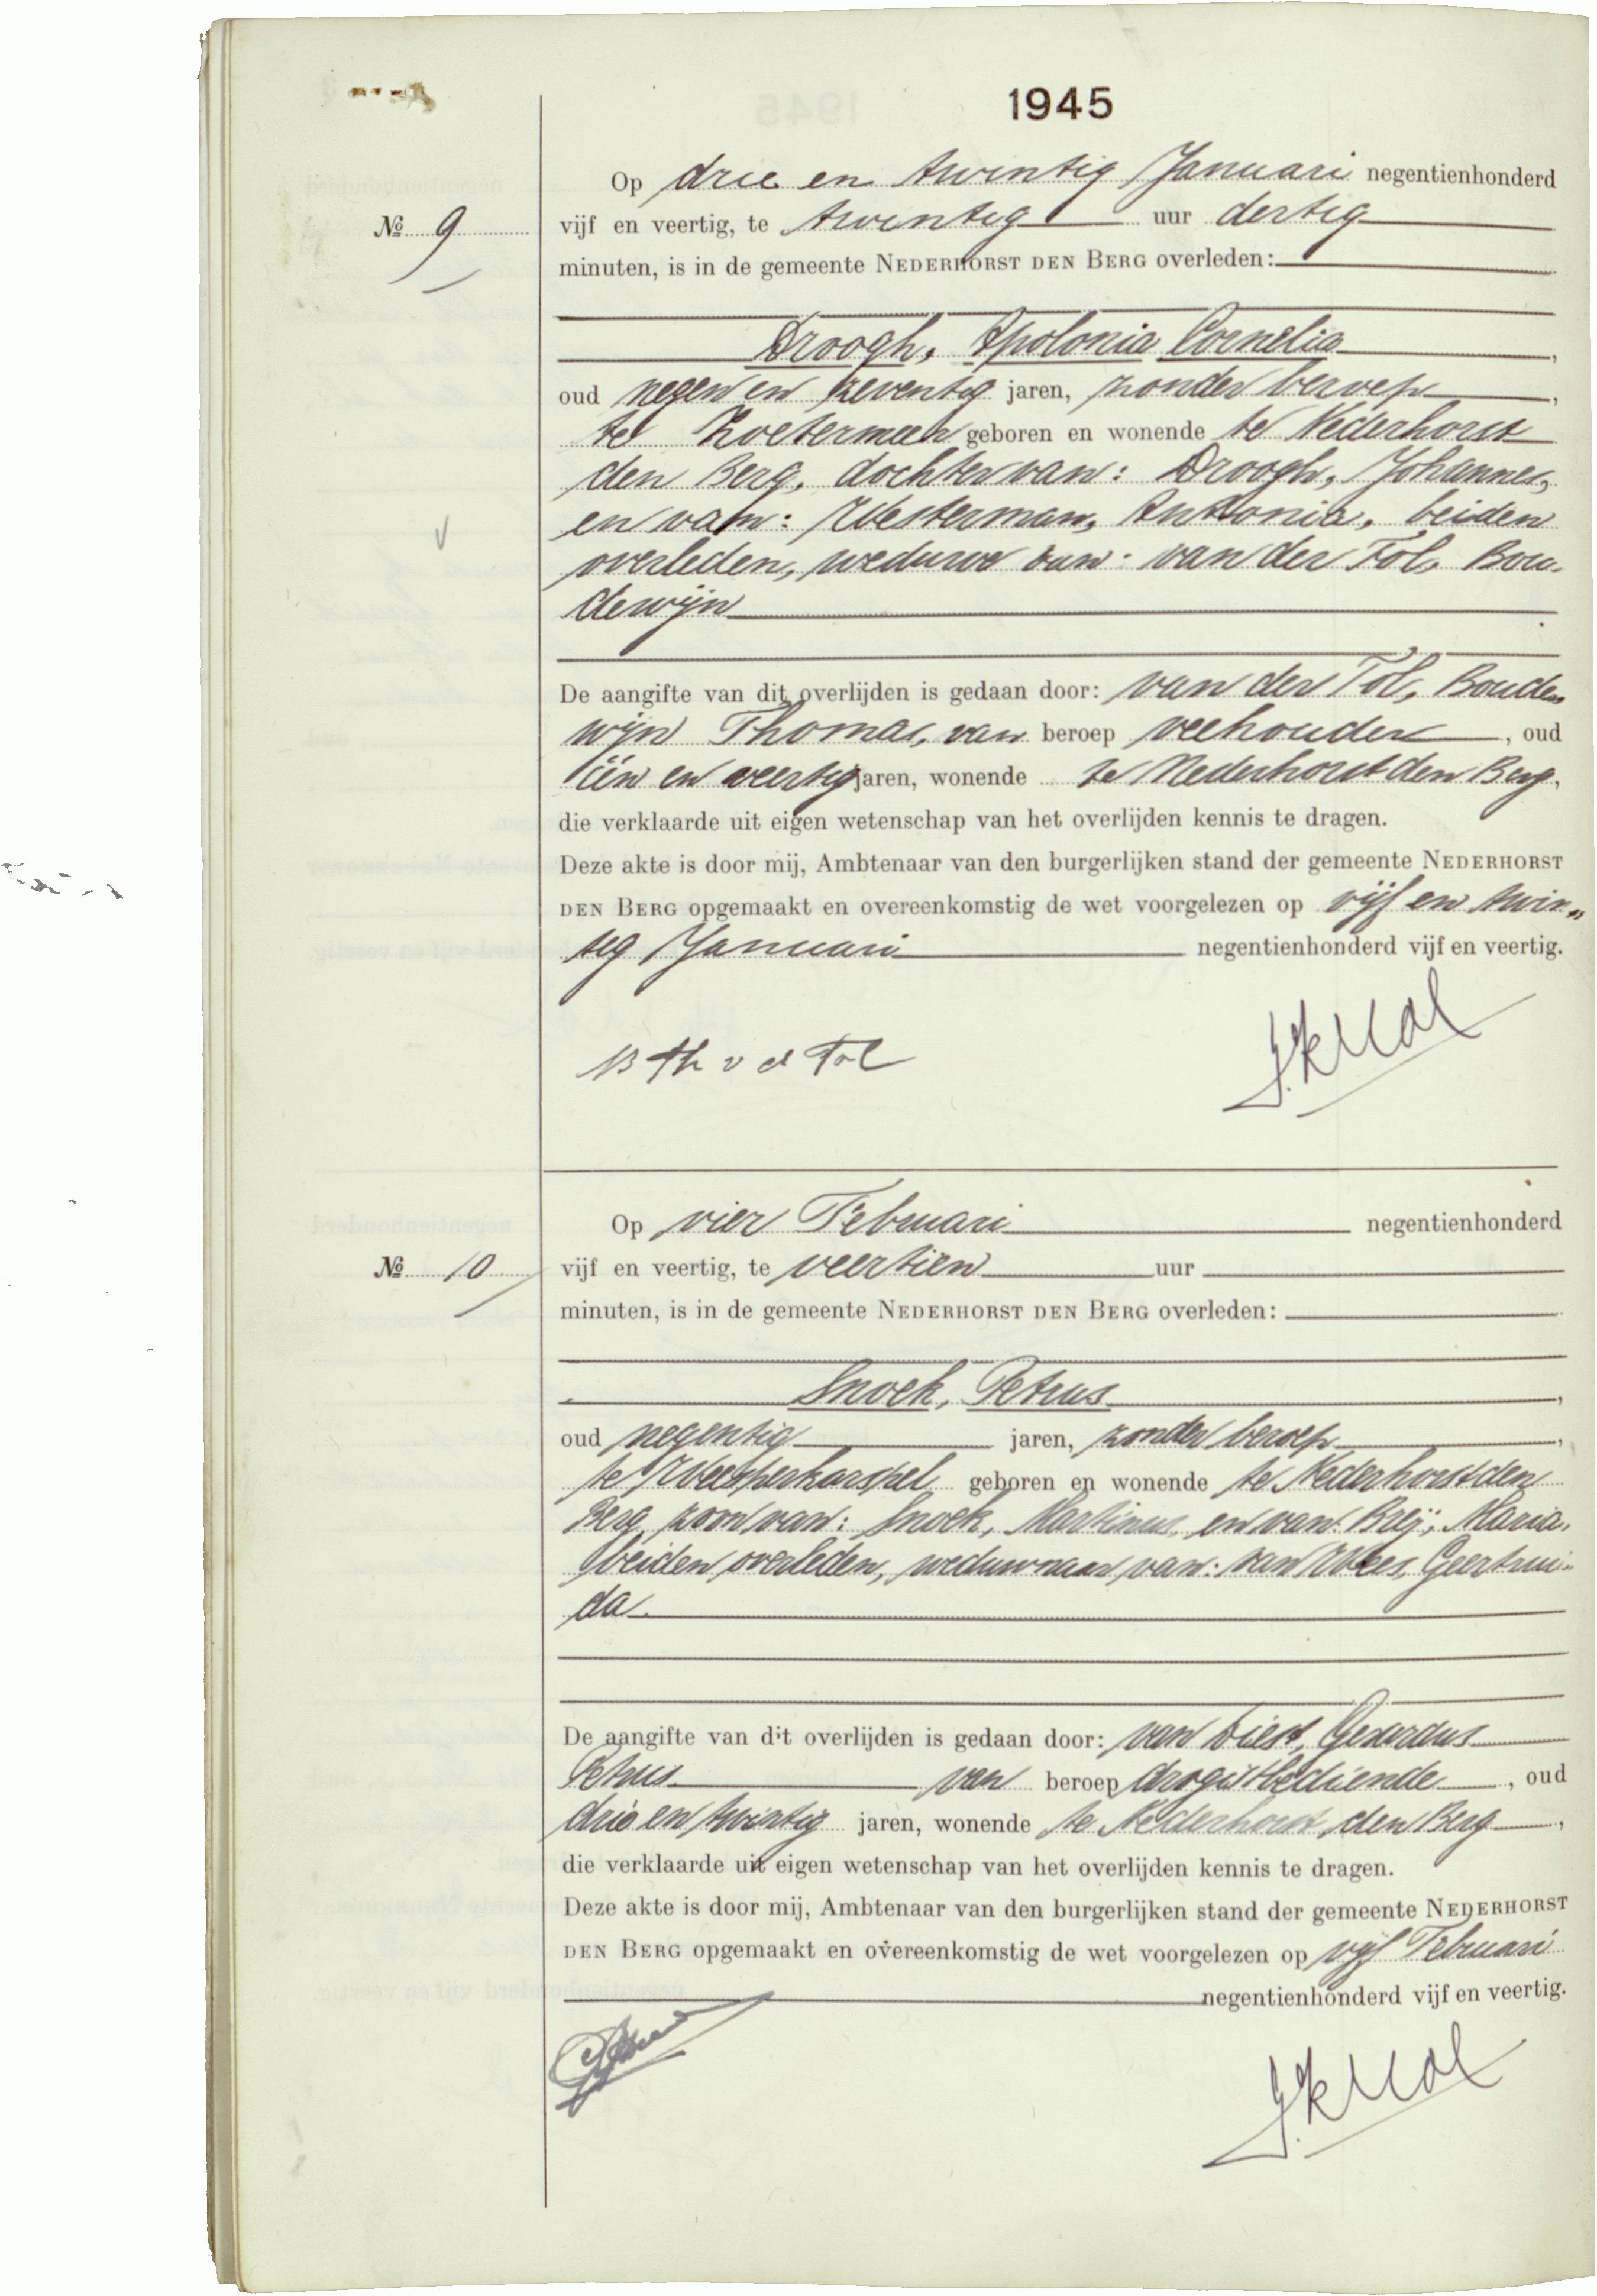 1945
Op drie en twintig Januari negentienhonderd
№ 9
vijf en veertig, te twintig uur dertig
minuten, is in de gemeente NEDERHORST DEN BERG overleden:
Droogh, Apolonia Cornelia,
oud negen en zeventig jaren, zonder beroep,
te Zoetermeer geboren en wonende te Nederhorst
den Berg, dochter van: Droogh, Johannes,
en van: Westerman, Antonia, beiden
overleden, weduwe van: van der Tol, Bou-
dewijn
De aangifte van dit overlijden is gedaan door: van der Tol, Boude
wijn Thomas, van beroep veehouder, oud
één en veertig jaren, wonende te Nederhorst den Berg,
die verklaarde uit eigen wetenschap van het overlijden kennis te dragen.
Deze akte is door mij, Ambtenaar van den burgerlijken stand der gemeente NEDERHORST
DEN BERG opgemaakt en overeenkomstig de wet voorgelezen op vijf en twin„
tig Januari negentienhonderd vijf en veertig.
B Th v d Tol
Op vier Februari negentienhonderd
№ 10
vijf en veertig, te veertien uur
minuten, is in de gemeente NEDERHORST DEN BERG overleden:
Snoek, Petrus,
oud negentig jaren, zonder beroep,
te Weesperkarspel geboren en wonende te Nederhorst den
Berg, zoon van: Snoek, Martinus, en van: Breij, Maria,
beiden overleden, weduwnaar van: van Wees, Geertrui-
da
De aangifte van dit overlijden is gedaan door: van Diest, Gerardus
Petrus van beroep drogistbediende, oud
drie en twintig jaren, wonende te Nederhorst den Berg,
die verklaarde uit eigen wetenschap van het overlijden kennis te dragen.
Deze akte is door mij, Ambtenaar van den burgerlijken stand der gemeente NEDERHORST
DEN BERG opgemaakt en overeenkomstig de wet voorgelezen op vijf Februari
negentienhonderd vijf en veertig.